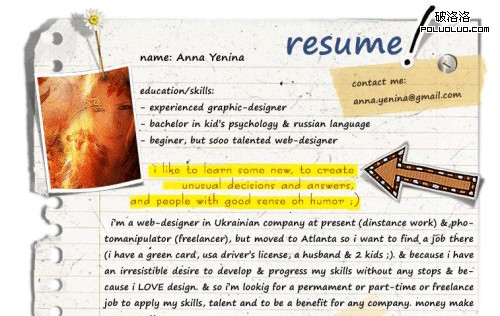 破洛洛
POLUOLUO.COM
resume!
name: Anna Yenina
contact me:
anna.yenina@gmail.com
education/skills:
- experienced graphic-designer
- bachelor in kid's psychology & russian language
- beginer, but sooo talented web-designer
i like to learn some new, to create
unusual decisions and answers,
and people with good sense oh humor ;)
i'm a web-designer in Ukrainian company at present (dinstance work) & pho-
tomanipulator (freelancer), but moved to Atlanta so i want to find a job there
(i have a green card, usa driver's license, a husband & 2 kids ;). & because i have
an irresistible desire to develop & progress my skills without any stops & be-
cause i LOVE design. & so i'm lookig for a permament or part-time or freelance
job to apply my skills, talent and to be a benefit for any company. money make